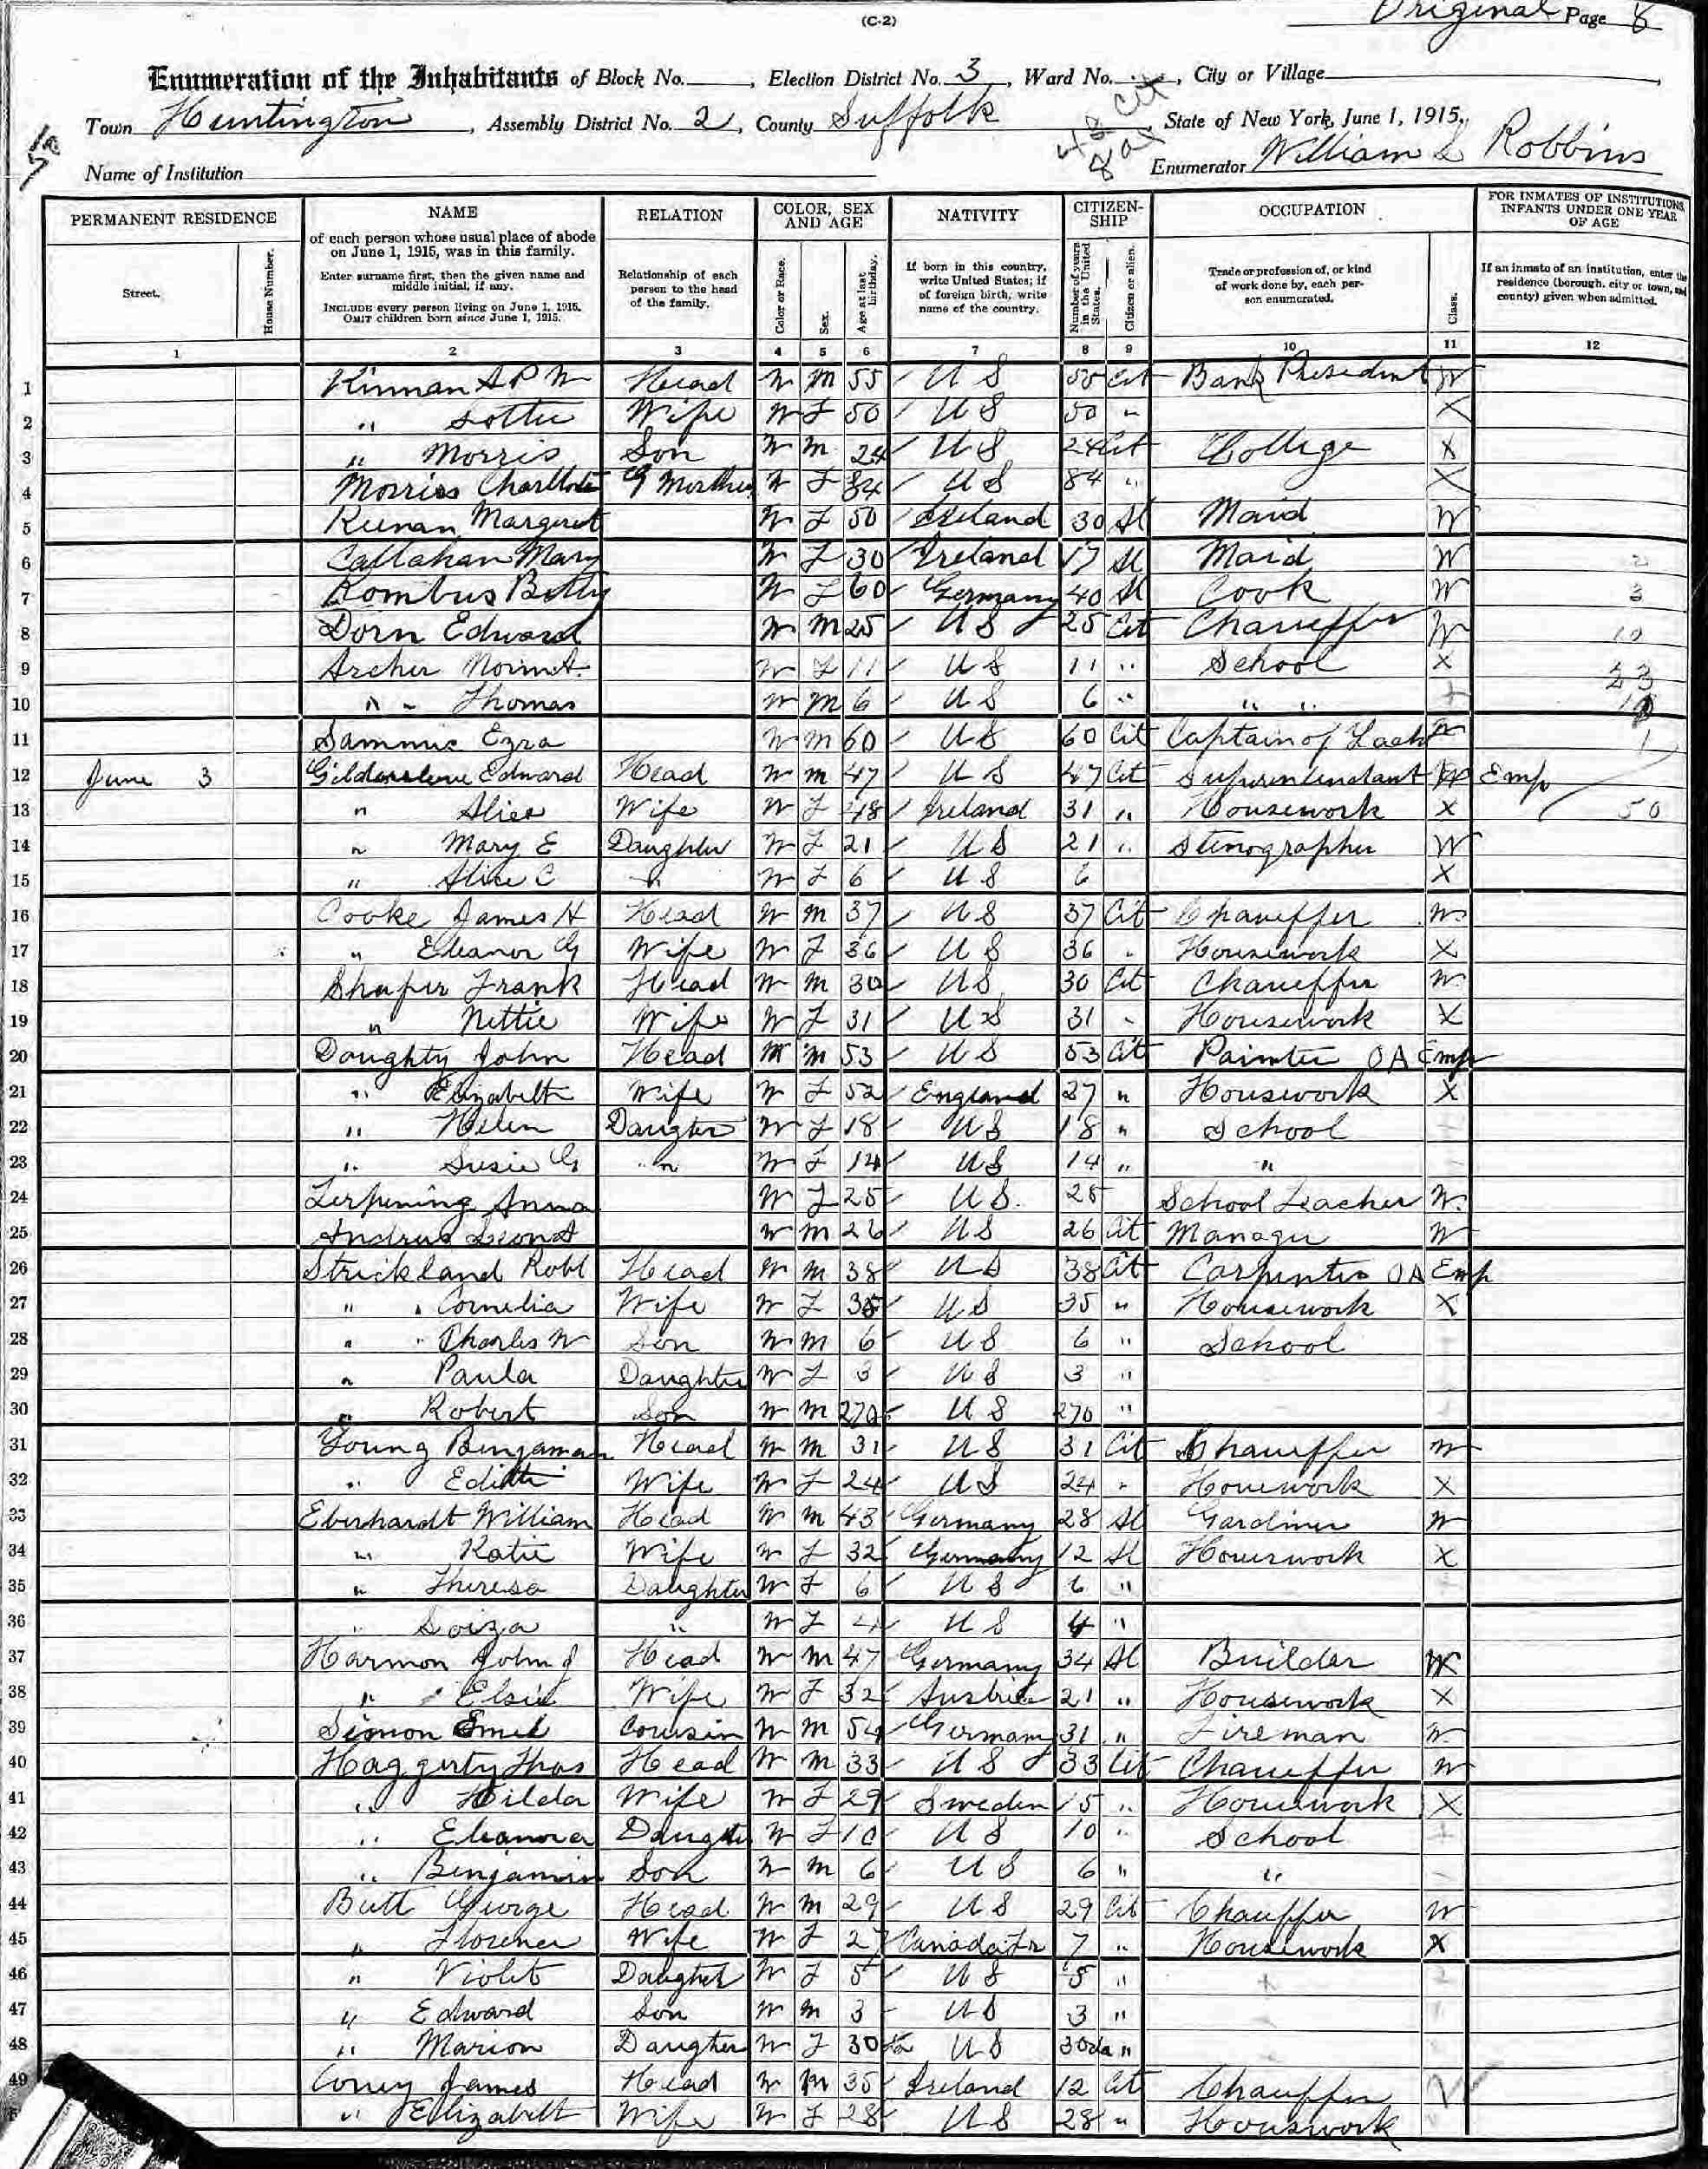 (C-2)
Original Page 8
Enumeration of the Inhabitants of Block No. , Election District No. 3 , Ward No. , City or Village ,
Town Huntington , Assembly District No. 2 , County Suffolk , State of New York, June 1, 1915.
48 Cit
8 al
Name of Institution Enumerator William L Robbins
PERMANENT RESIDENCE NAME RELATION COLOR, SEX AND AGE NATIVITY CITIZEN-SHIP OCCUPATION FOR INMATES OF INSTITUTIONS, INFANTS UNDER ONE YEAR OF AGE
Street. House Number. of each person whose usual place of abode on June 1, 1915, was in this family. Enter surname first, then the given name and middle initial, if any. INCLUDE every person living on June 1, 1915. OMIT children born since June 1, 1915. Relationship of each person to the head of the family. Color or Race. Sex. Age at last birthday. If born in this country, write United States; if of foreign birth, write name of the country. Number of years in the United States. Citizen or alien. Trade or profession of, or kind of work done by, each person enumerated. Class. If an inmate of an institution, enter the residence (borough, city or town, and county) given when admitted.
1 2 3 4 5 6 7 8 9 10 11 12
1 Kinnan A P W Head W M 55 U S 55 Cit Bank President W
2 " Lottie Wife W F 50 U S 50 "
X
3 " Morris Son W M 24 U S 24 Cit College X
4 Morriss Charllote G Morther W F 84 U S 84 " X
5 Keenan Margeret W F 50 Ireland 30 Al Maid W
6 Callahan Mary W F 30 Ireland 17 Al Maid W 2
7 Rombus Betty W F 60 Germany 40 Al Cook W 3
8 Dorn Edward W M 25 U S 25 Cit Chaueffer W 10
9 Archer W F 11 U S 11 " School X 23
10 " " Thomas W M 6 U S 6 " " "
11 Sammis Ezra W M 60 U S 60 Cit Captain of Yacht W 1
12 June 3 Gildersleeve Edward Head W M 47 U S 47 Cit Superintendant W Emp
13 " Alice Wife W F 48 Ireland 31 " Housework X 50
14 " Mary E Daughter W F 21 U S 21 " Stenographer W
15 " Alice C " W F 6 U S 6 X
16 Cooke James H Head W M 37 U S 37 Cit Chaueffer W
17 " Eleanor G Wife W F 36 U S 36 " Housework X
18 Shafer Frank Head W M 30 U S 30 Cit Chaueffer W
19 " Nettie Wife W F 31 U S 31 " Housework X
20 Doughty John Head W M 53 U S 53 Cit Painter O A Emp
21 " Elizabeth Wife W F 52 England 27 " Housework X
22 " Helen Daugter W F 18 U S 18 " School
23 " Susie G " W F 14 U S 14 " "
24 Terpening Anna W F 25 U S. 25 School Teacher W.
25 Andrus Leon A W M 26 U S 26 Cit Manager W
26 Strickland Robt Head W M 38 U S 38 Cit Carpenter O A Emp
27 " Cornelia Wife W F 35 U S 35 " Housework X
28 " Charles W Son W M 6 U S 6 " School
29 " Paula Daughter W F 3 U S 3 "
30 " Robert Son W M U S "
31 Young Benjaman Head W M 31 U S 31 Cit Chaueffer W
32 " Edith Wife W F 24 U S 24 " Housework X
33 Eberhardt William Head W M 43 Germany 28 Al Gardiner W
34 " Katie Wife W F 32 Germany 12 Al Housework X
35 " Theresa Daughter W F 6 U S 6 "
36 " Soiza " W F 4 U S 4 "
37 Harmon John J Head W M 47 Germany 34 Al Builder W
38 " Elsie Wife W F 32 Austria 21 " Housework X
39 Simon Emil Cousin W M 54 Germany 31 " Fireman W
40 Haggerty Thos Head W M 33 U S 33 Cit Chaueffer W
41 " Hilda Wife W F 29 Sweden 15 " Housework X
42 " Eleanora Daugter W F 10 U S 10 " School
43 " Benjamin Son W M 6 U S 6 " "
44 Butt George Head W M 29 U S 29 Cit Chauffer W
45 " Florence Wife W F 27 Canada Fr 7 " Housework X
46 " Violet Daugter W F 5 U S 5 "
47 " Edward Son W M 3 U S 3 "
48 " Marion Daugter W F 30 da U S 30 da "
49 Coney James Head W M 35 Ireland 12 Cit Chauffer W
" Ellizabeth Wife W F 28 U S 28 " Houswork